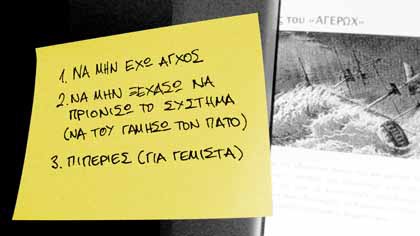 ς του «ΑΓΕΡΩΧ»
1. ΝΑ ΜΗΝ ΕΧΩ ΑΓΧΟΣ
2. ΝΑ ΜΗΝ ΞΕΧΑΣΩ ΝΑ
ΠΡΙΟΝΙΣΩ ΤΟ ΣΥΣΤΗΜΑ
(ΝΑ ΤΟΥ ΓΑΜΗΣΩ ΤΟΝ ΠΑΤΟ)
3. ΠΙΠΕΡΙΕΣ (ΓΙΑ ΓΕΜΙΣΤΑ)